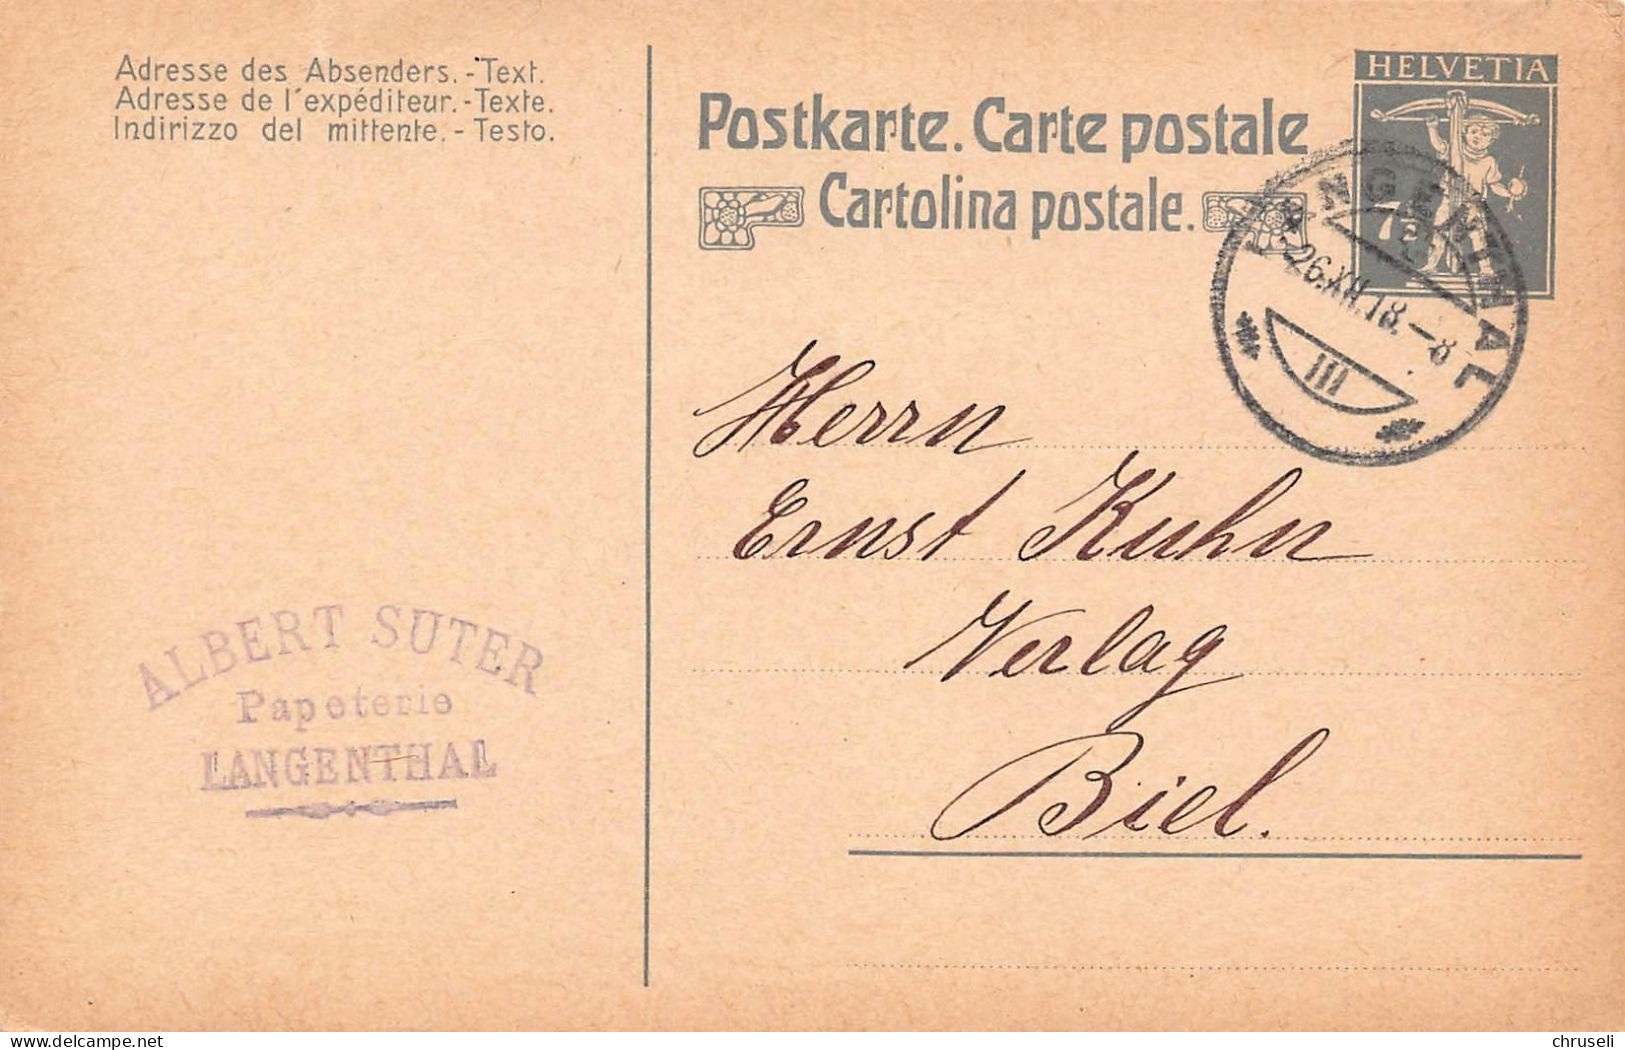 Adresse des Absenders.-Text.
Adresse de l'expéditeur.-Texte.
Indirizzo del mittente.-Testo.
HELVETIA
7½
Postkarte. Carte postale
Cartolina postale.
LANGENTHAL
-26.XII.18.-8
III
Herrn
Ernst Kuhn
Verlag
Biel.
ALBERT SUTER
Papeterie
LANGENTHAL
delcampe.net
chruseli